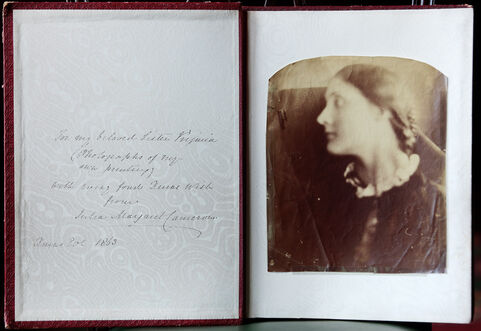 For my beloved Sister Virginia
(Photographs of my
own printing)
with every fond
from
Julia Margaret Cameron
1863